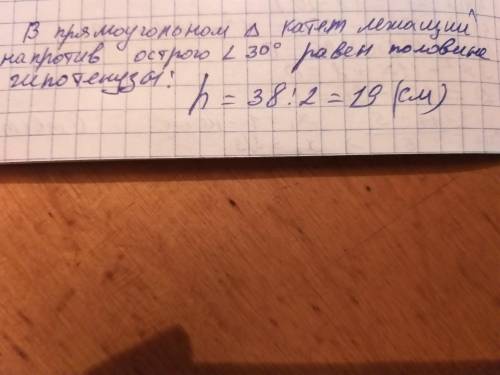 В прямоугольном Δ катет лежащий
напротив острого ∠ 30° равен половине
гипотенузы:
h = 38:2 = 19 (см)